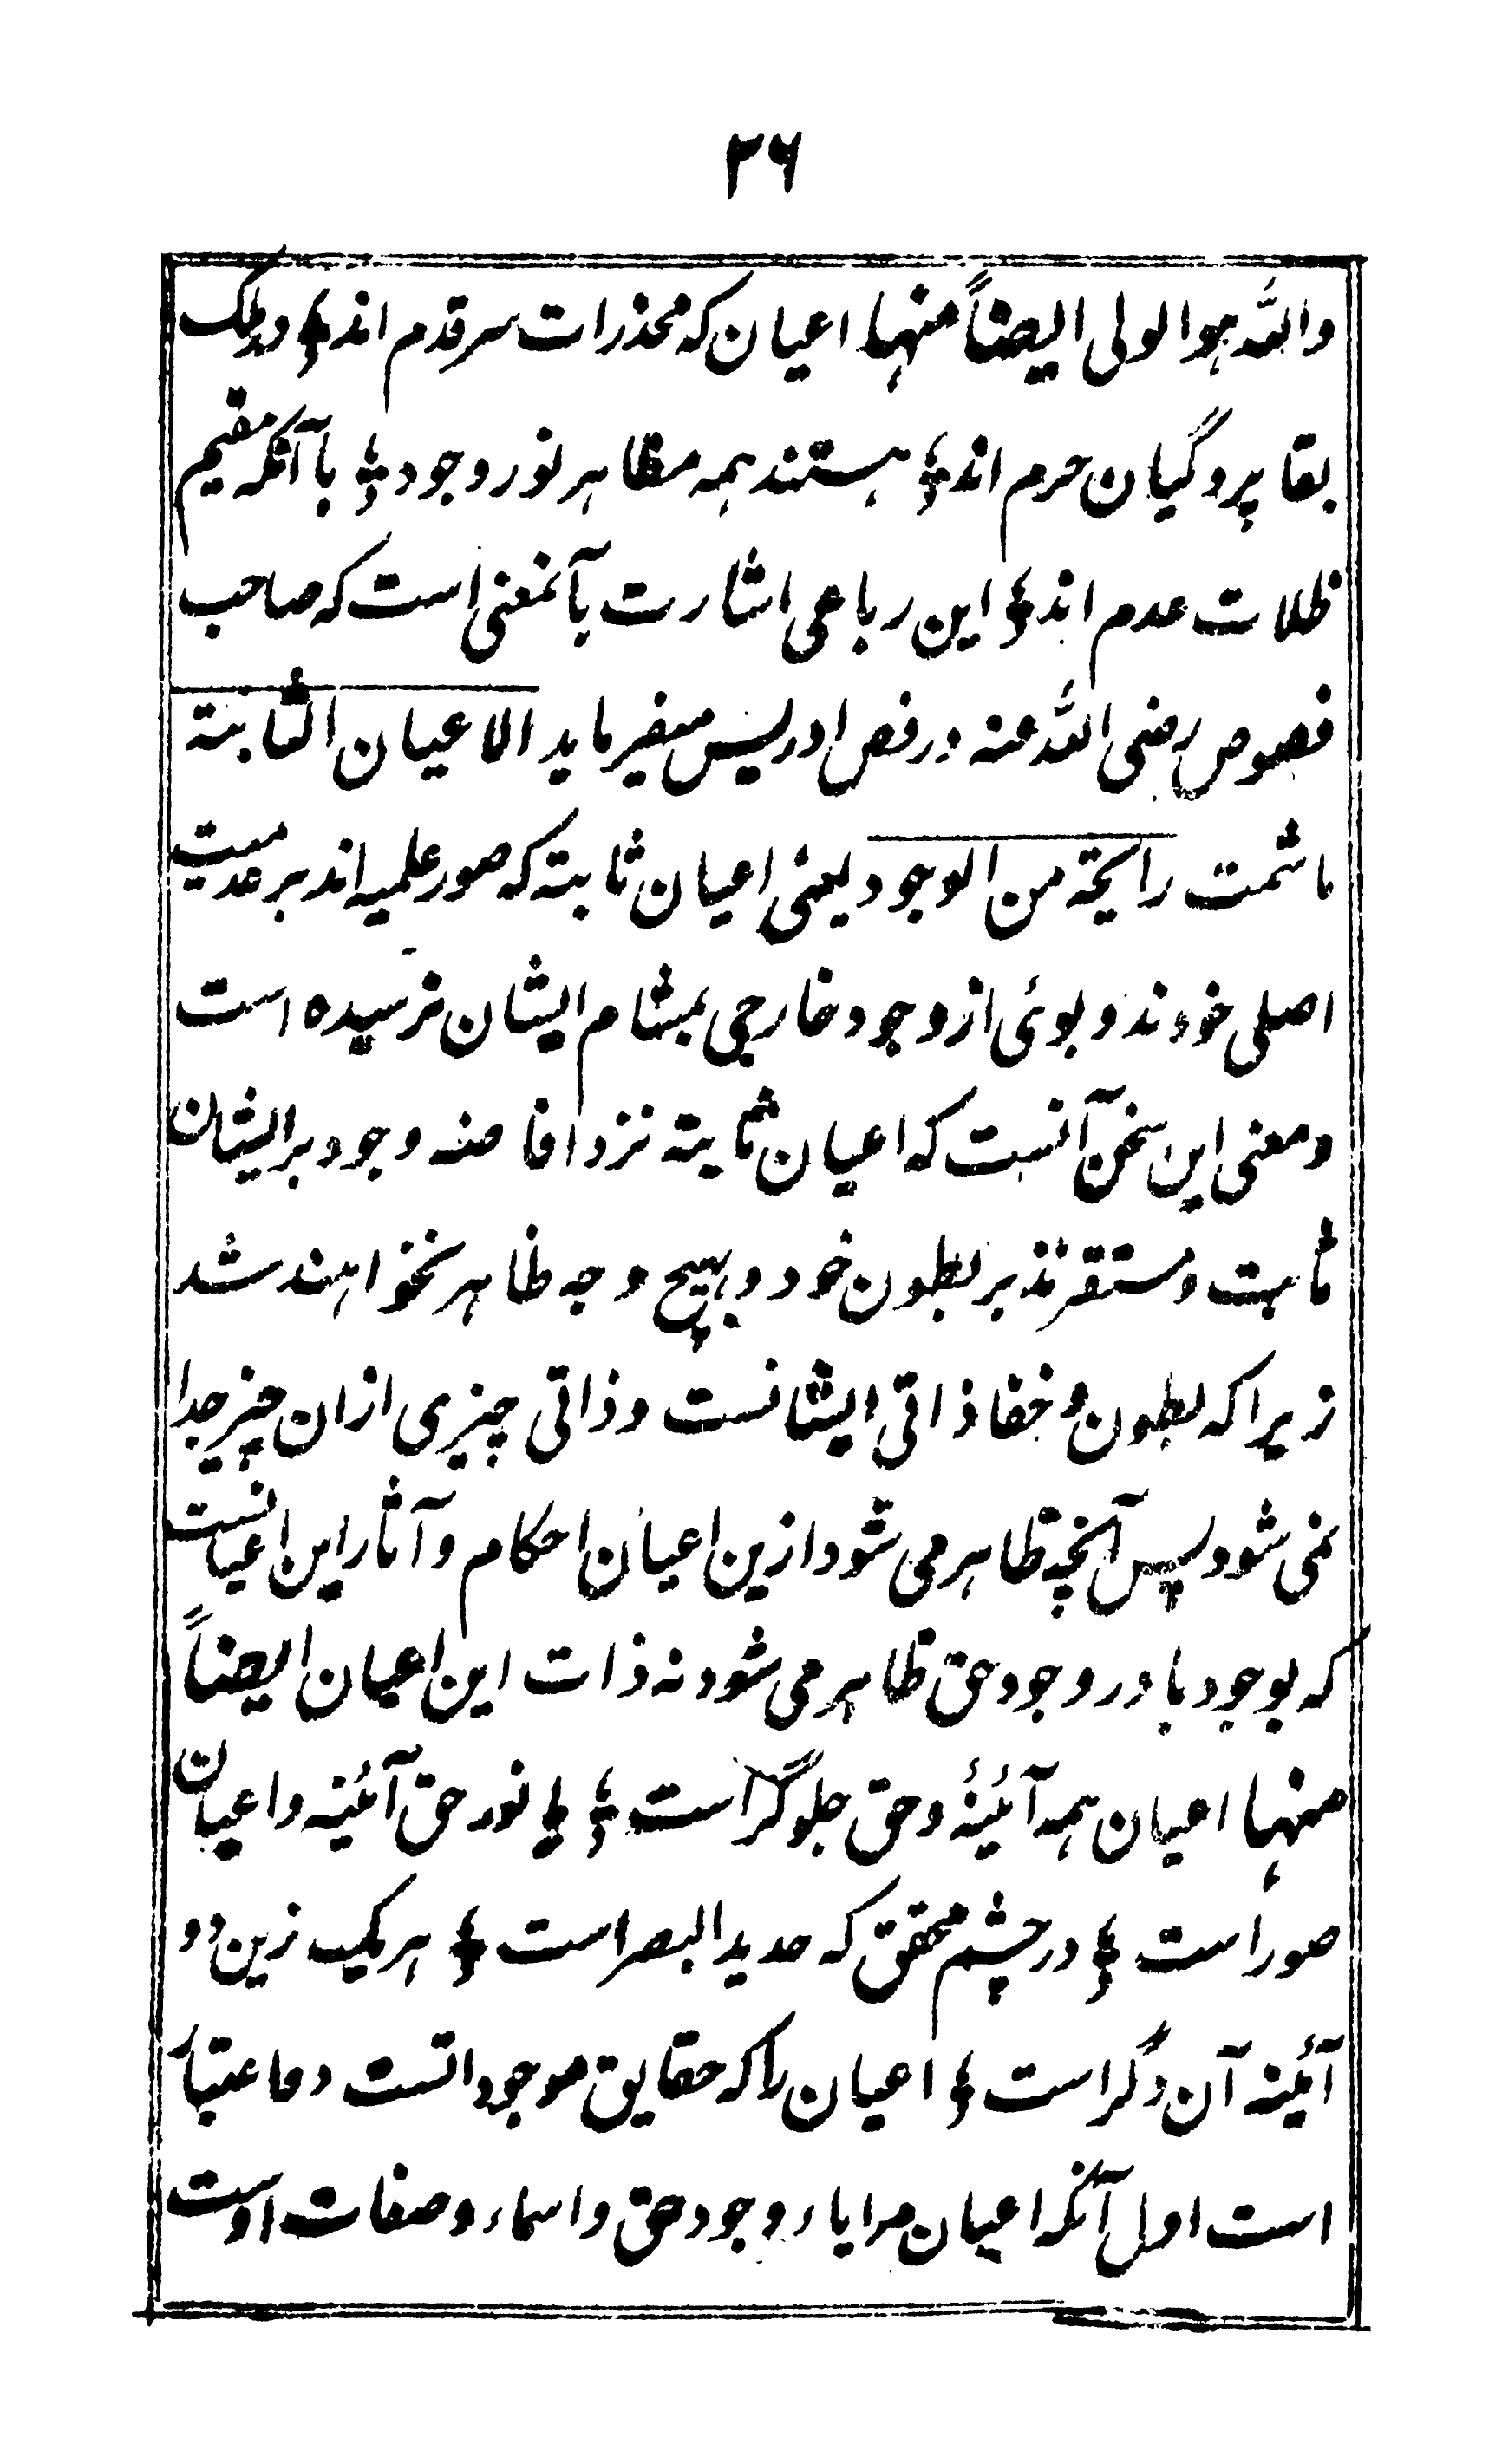 ۲۶
والله هو الولی ایضاً منها اعیان که مخدرات سر قدم اند ؛ در ملک
بقا پروگیان حرم اند ؛ هستند همه مظاهر نور وجود ؛ با آنکه مقیم
ظلمات عدم اند ؛ این رباعی اشارت بآنمعنی است که صاحب
فصوص رضی الله عنه در فص ادریس میفرماید الاعیان الثابتة
ما شمت رایحة من الوجود یعنی اعیان ثابته که صور علمیه اند بر عدمیت
اصلی خودند و بوئی از وجود خارجی بمشام ایشان نرسیده است
و معنی این سخن آنست که اعیان ثابته نزد افاضه وجود بر ایشان
ثابت و مستقرند بر بطون خود و بهیچ وجه ظاهر نخواهند شد
زیرا که بطون و خفا ذاتی ایشانست و ذاتی چیزی ازان چیز جدا
نمی شود پس آنچه ظاهر می شود ازین اعیان احکام و آثار این اعیانست
که بوجود یا در وجود حق ظاهر می شود نه ذات این اعیان ایضاً
منها اعیان همه آئینهٔ و حق جلوگر است ؛ یا نور حق آئینه و اعیان
صور است ؛ در چشم محقق که حدید البصر است ؛ هر یک زین دو
آئینه آن دگر است ؛ اعیان را که حقایق موجوداتست دو اعتبار
است اول آنکه اعیان مرایاء وجود حق و اسماء و صفات اوست